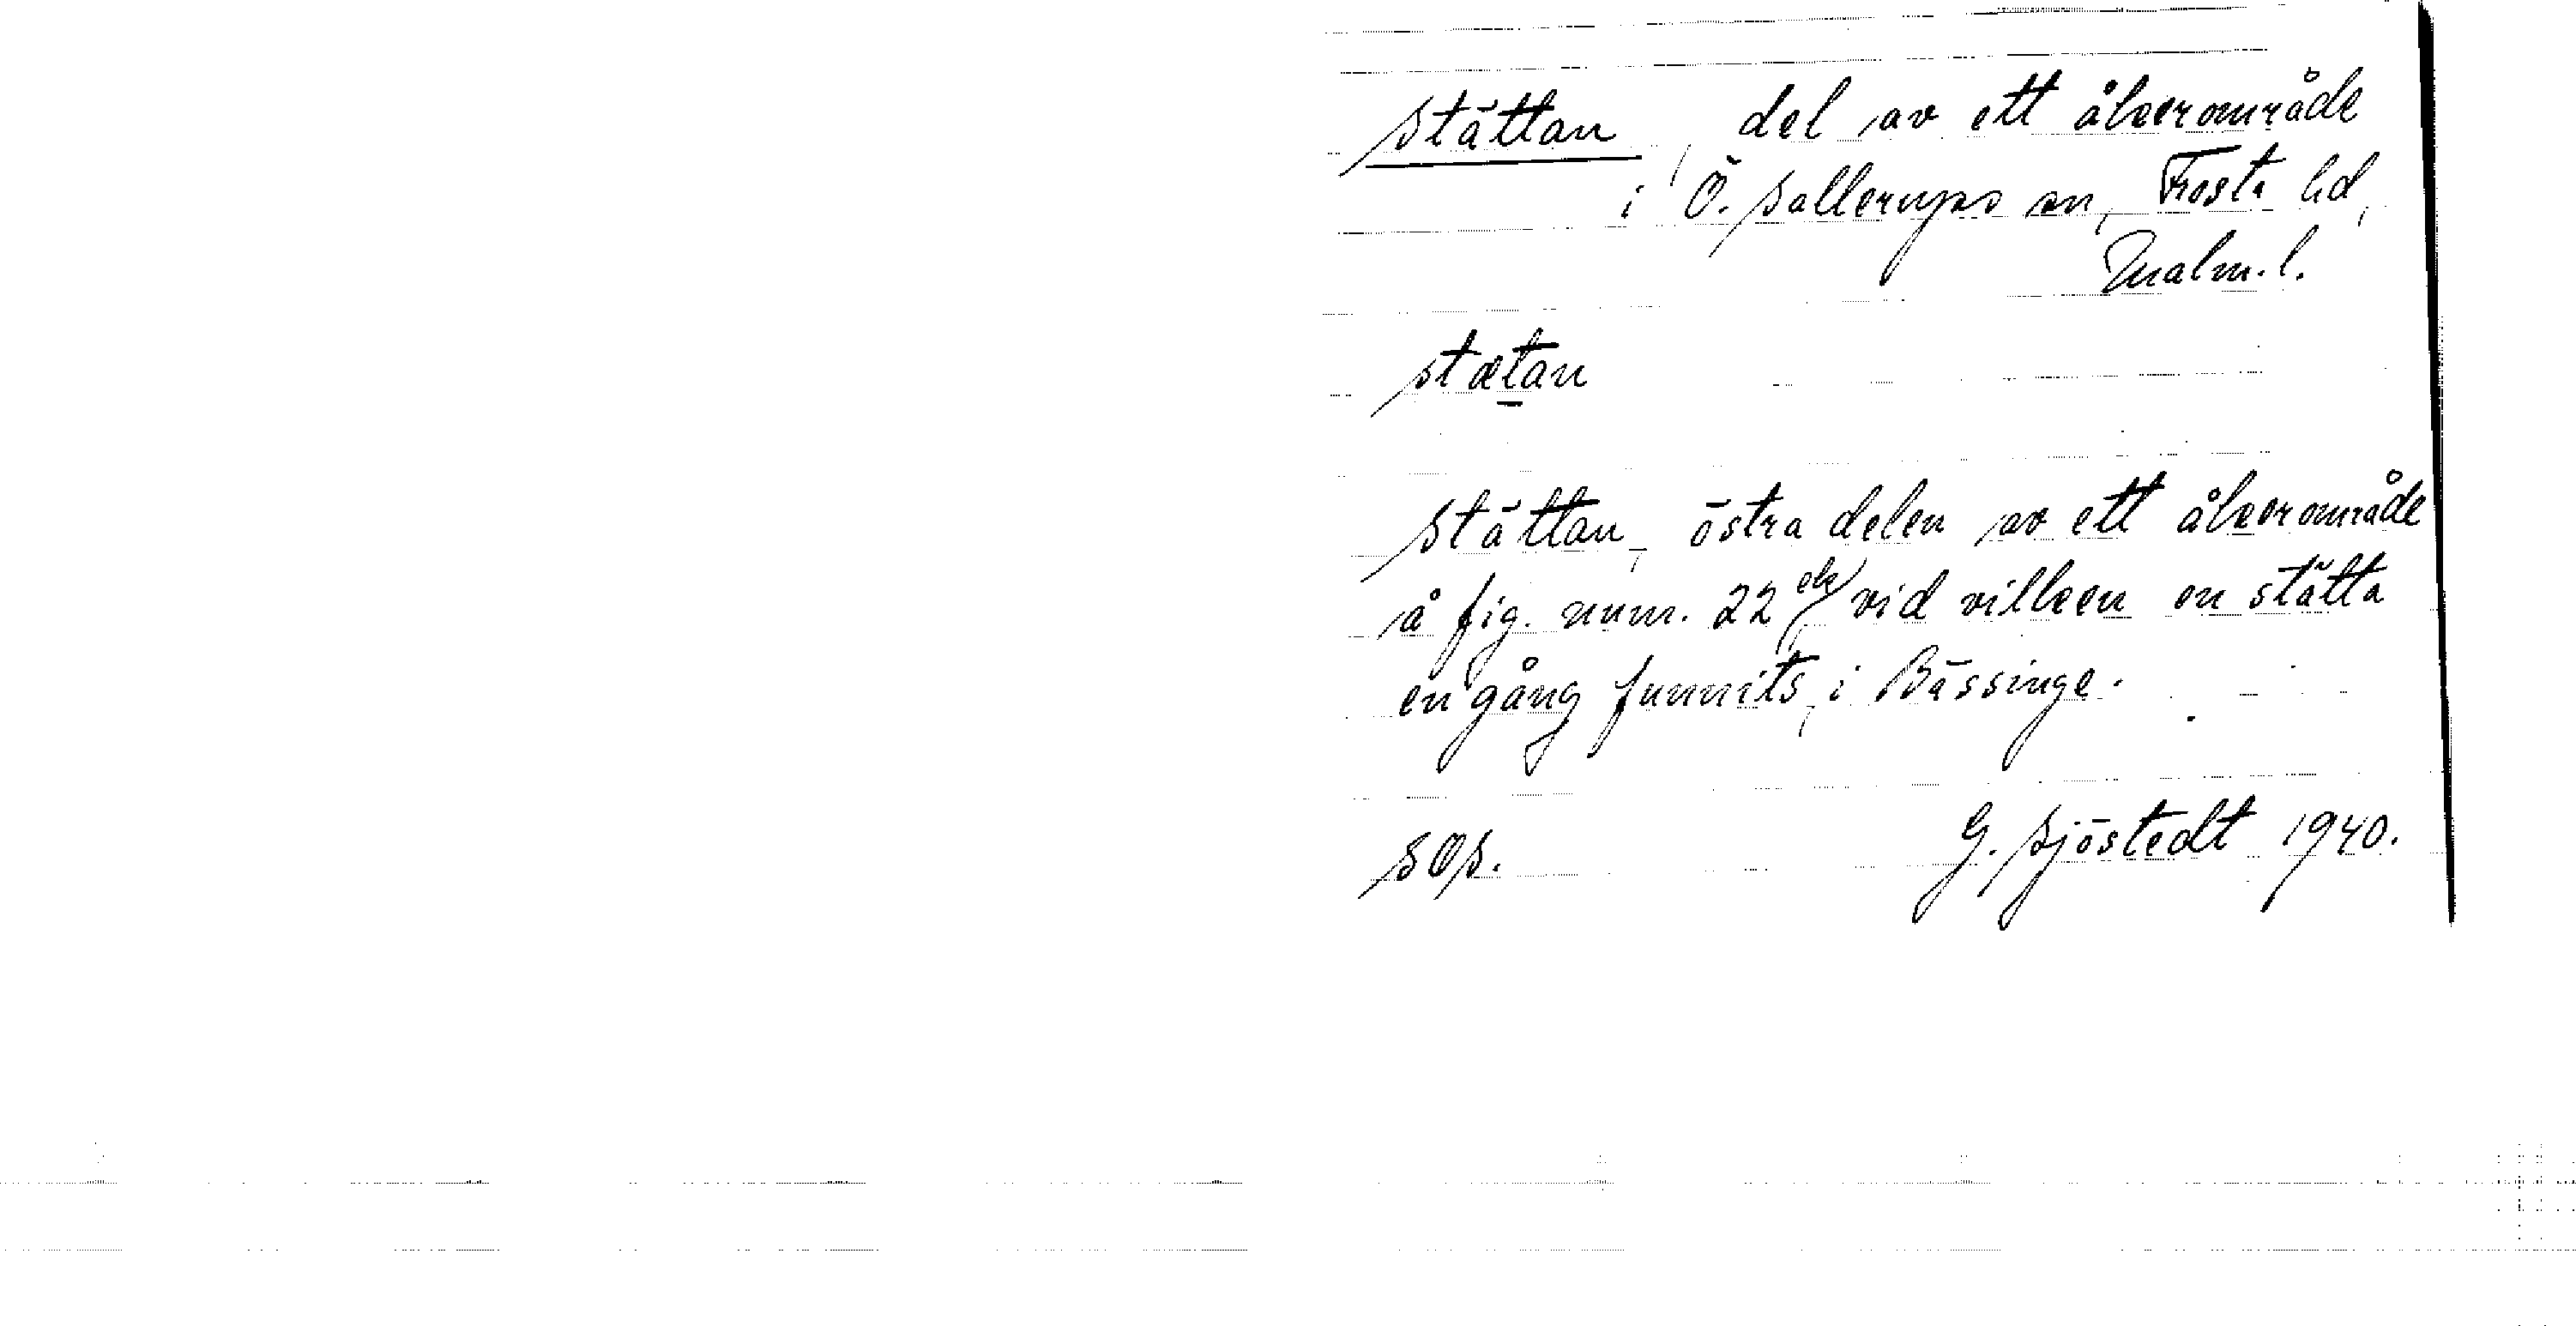 Stättan, del av ett åkerområde
i Ö. Sallerups sn, Frosta hd,
Malm. l.
stætan
Stättan, östra delen av ett åkerområde
å fig. num. 22 ek, vid vilken en stätta
en gång funnits, i Bässinge.
SOS. G. Sjöstedt 1940.